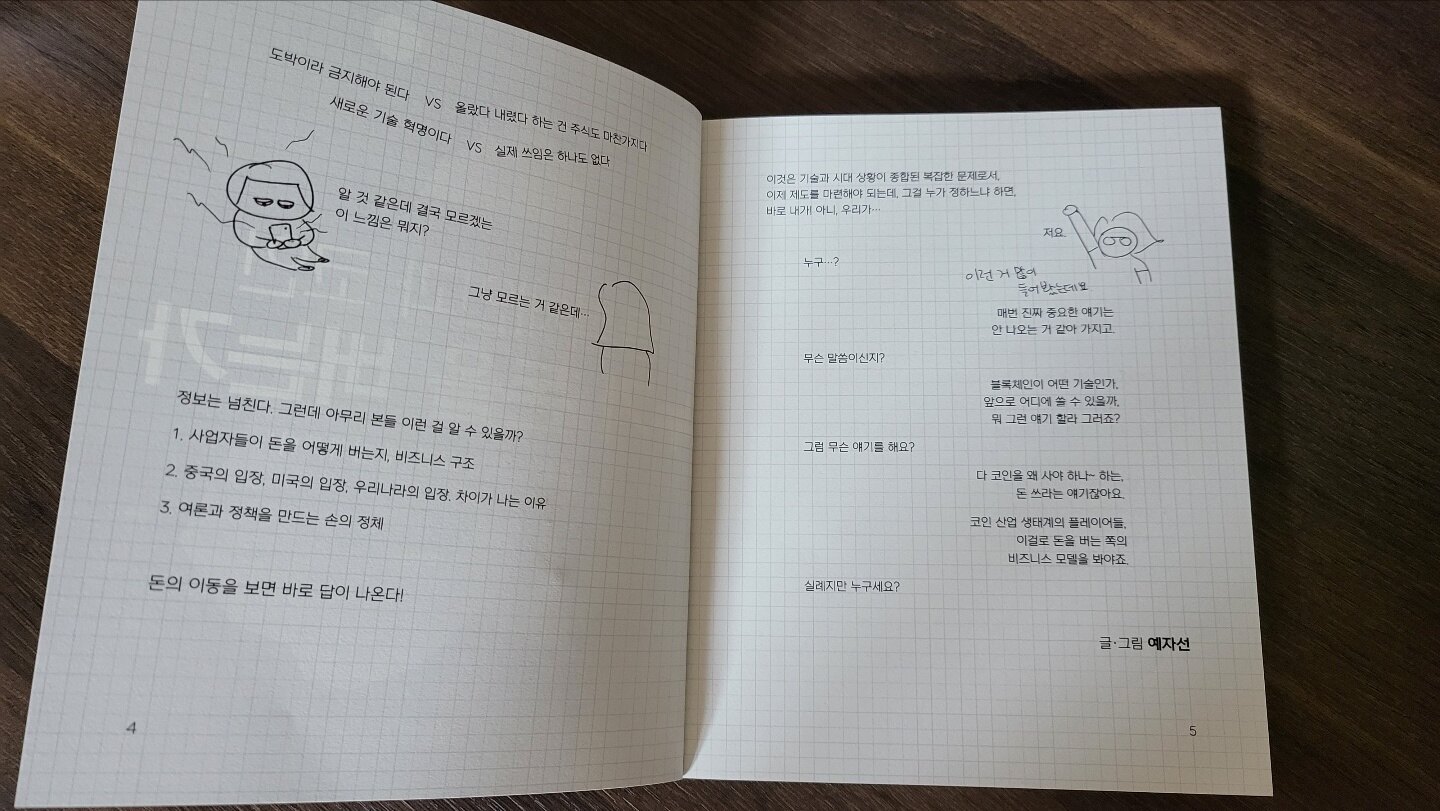 도박이라 금지해야 된다 VS 올랐다 내렸다 하는 건 주식도 마찬가지다
새로운 기술 혁명이다 VS 실제 쓰임은 하나도 없다
알 것 같은데 결국 모르겠는
이 느낌은 뭐지?
그냥 모르는 거 같은데…
정보는 넘친다. 그런데 아무리 본들 이런 걸 알 수 있을까?
1. 사업자들이 돈을 어떻게 버는지, 비즈니스 구조
2. 중국의 입장, 미국의 입장, 우리나라의 입장. 차이가 나는 이유
3. 여론과 정책을 만드는 손의 정체
돈의 이동을 보면 바로 답이 나온다!
4
이것은 기술과 시대 상황이 종합된 복잡한 문제로서,
이제 제도를 마련해야 되는데, 그걸 누가 정하느냐 하면,
바로 내가! 아니, 우리가…
저요.
누구…?
이런 거 많이
들어봤는데요
매번 진짜 중요한 얘기는
안 나오는 거 같아 가지고.
무슨 말씀이신지?
블록체인이 어떤 기술인가,
앞으로 어디에 쓸 수 있을까,
뭐 그런 얘기 할라 그러죠?
그럼 무슨 얘기를 해요?
다 코인을 왜 사야 하나~ 하는,
돈 쓰라는 얘기잖아요.
코인 산업 생태계의 플레이어들,
이걸로 돈을 버는 쪽의
비즈니스 모델을 봐야죠.
실례지만 누구세요?
글·그림 예자선
5